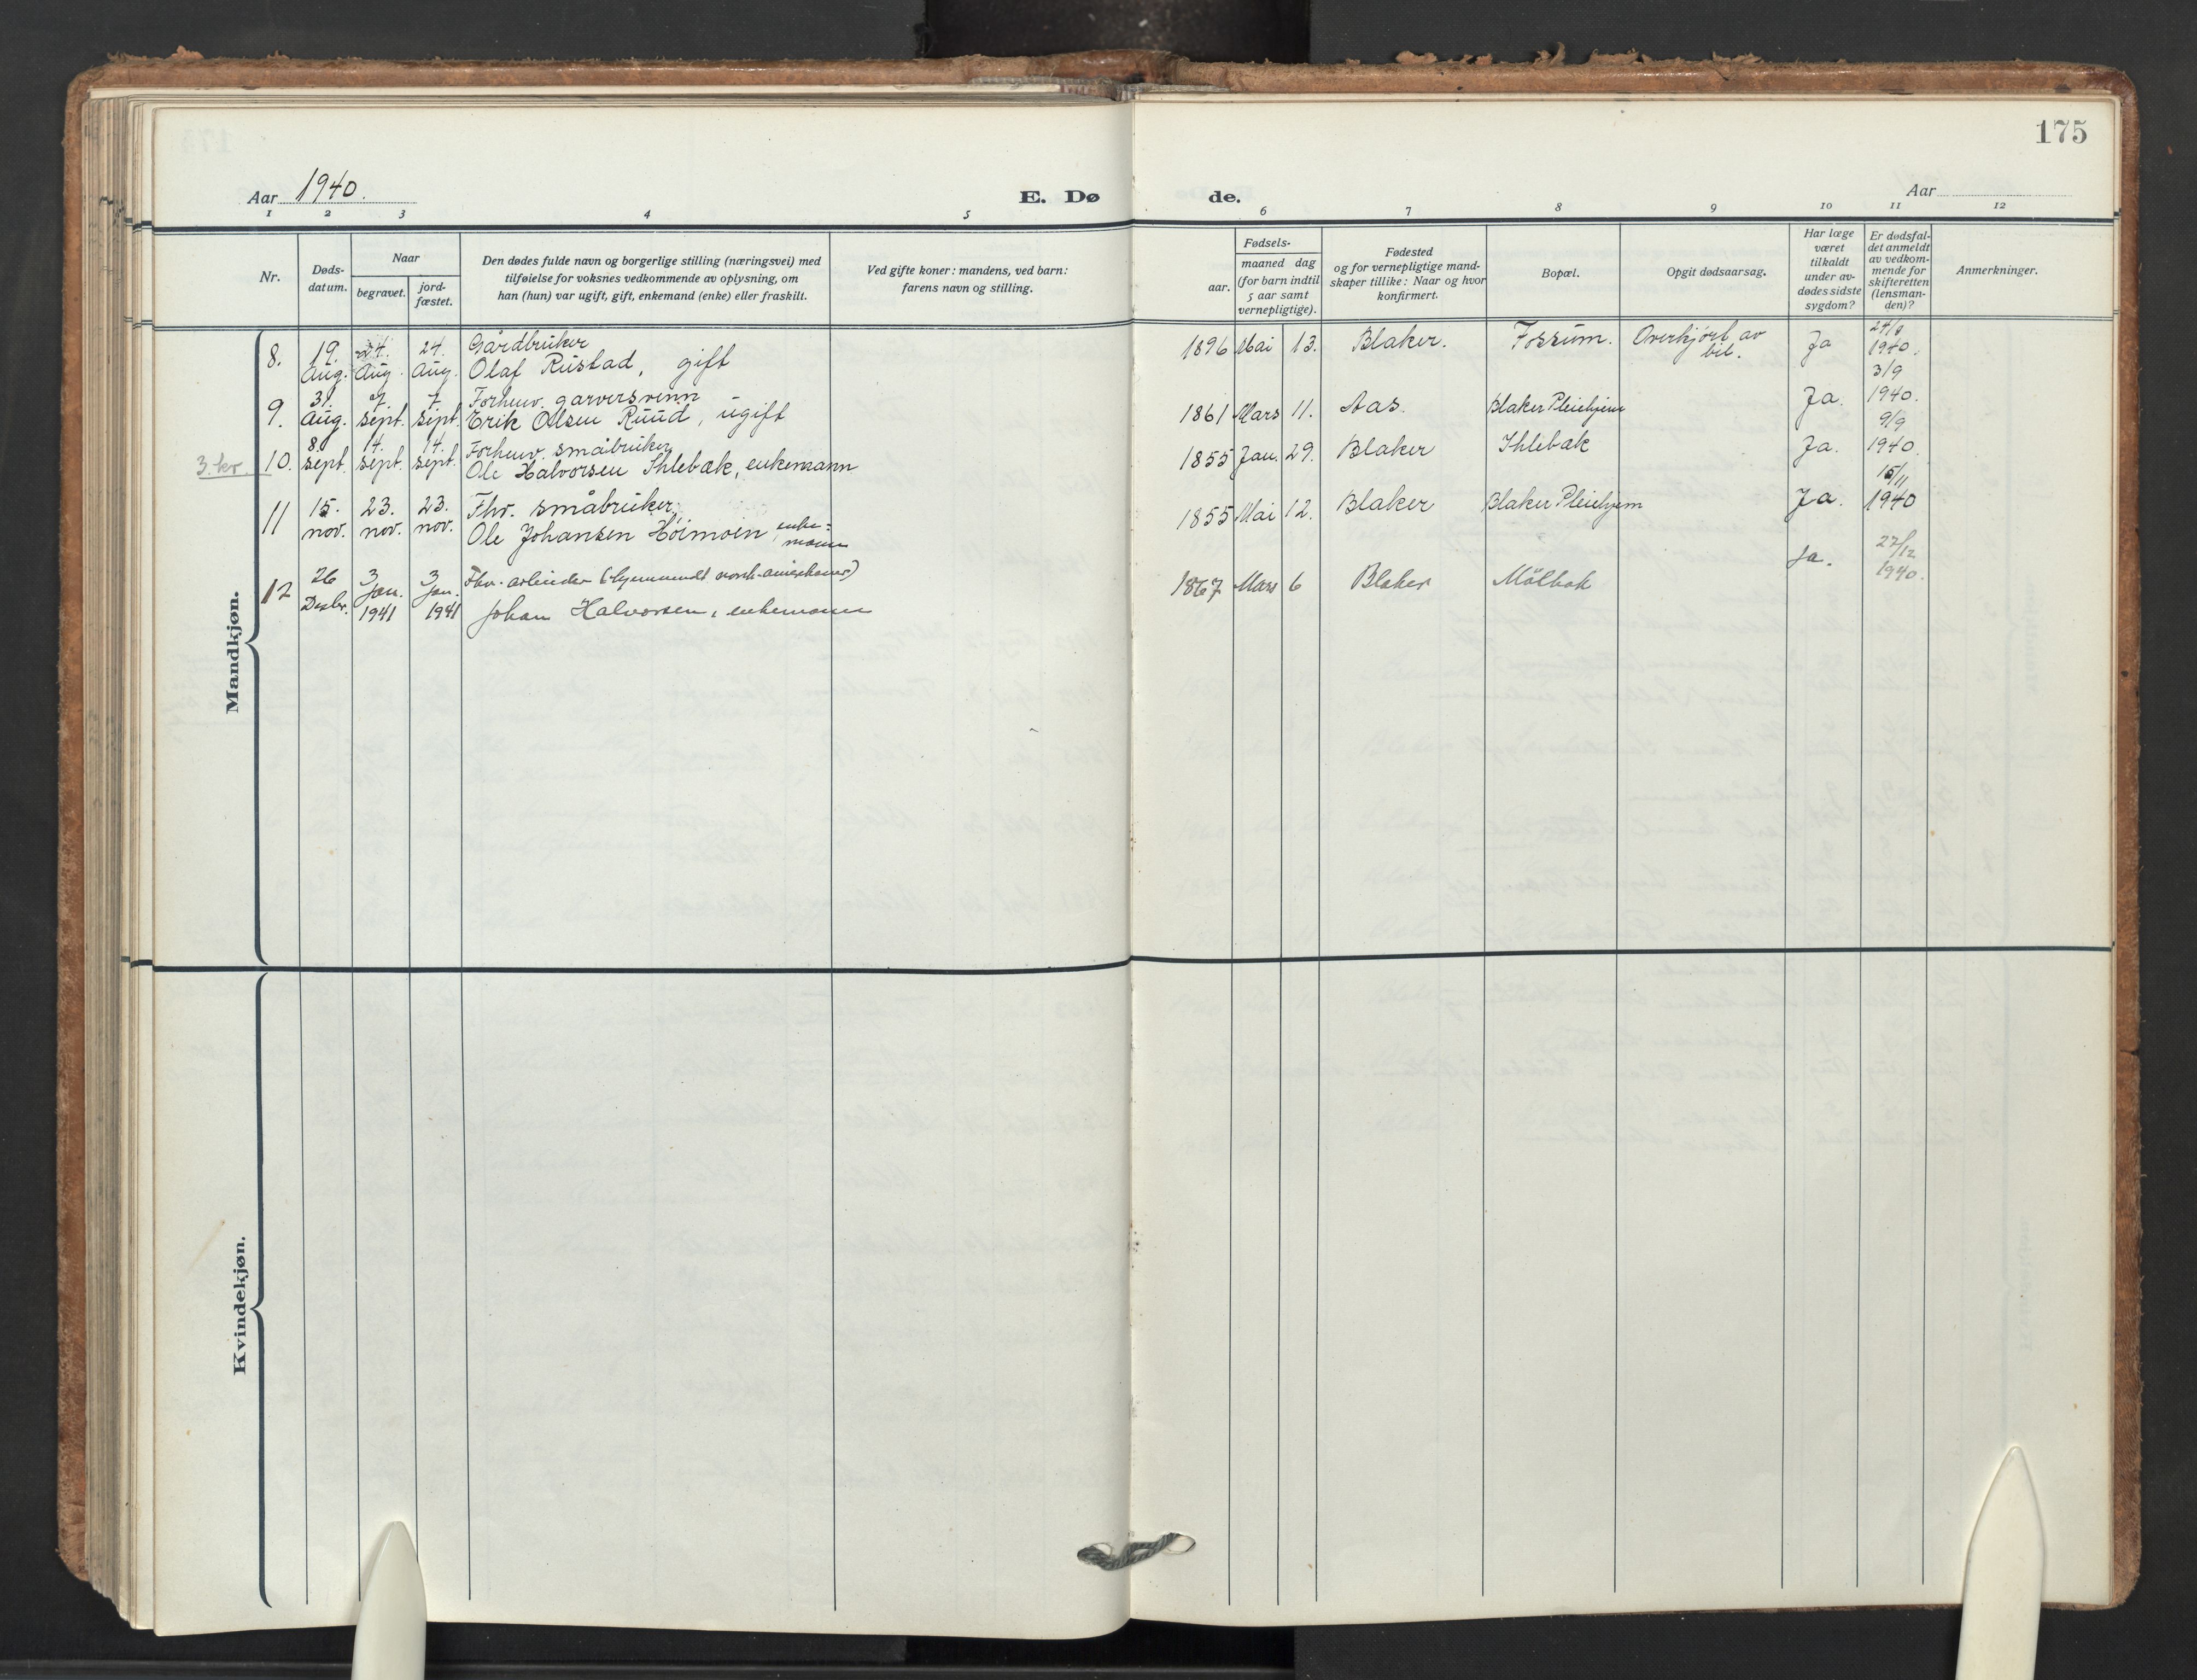 175
Aar 1940. E. Dø de. Aar
1 2 3 4 5 6 7 8 9 10 11 12
Nr.
Døds-
datum.
Naar
begravet.
jord-
fæstet.
Den dødes fulde navn og borgerlige stilling (næringsvei) med
tilføielse for voksnes vedkommende av oplysning, om
han (hun) var ugift, gift, enkemand (enke) eller fraskilt.
Ved gifte koner: mandens, ved barn:
farens navn og stilling.
Fødsels-
aar.
maaned dag
(for barn indtil
5 aar samt
vernepligtige).
Fødested
og for vernepligtige mand-
skaper tillike: Naar og hvor
konfirmert.
Bopæl.
Opgit dødsaarsag.
Har læge
været
tilkaldt
under av-
dødes sidste
sygdom?
Er dødsfal-
det anmeldt
av vedkom-
mende for
skifteretten
(lensman-
den)?
Anmerkninger.
Mandkjøn.
8. 19. Aug. 24. Aug. 24. Aug. Gårdbruker
Olaf Rustad, gift
1896 Mai 13. Blaker. Fossum. Overkjørt av
bil. Ja 24/8
1940.
9. 31. Aug. 7 sept. 7 sept. Forhenv. garversvenn
Erik Olsen Ruud, ugift
1861 Mars 11. Aas. Blaker Pleiehjem Ja. 3/9
1940.
3 kr. 10. 8. sept. 14. sept. 14. sept. Forhenv. småbruker
Ole Halvorsen Ihlebæk, enkemann
1855 Jan. 29. Blaker Ihlebæk Ja. 9/9
1940.
11 15. nov. 23. nov. 23. nov. Fhv. småbruker,
Ole Johansen Høimoen, enke-
mann
1855 Mai 12. Blaker Blaker Pleiehjem Ja. 15/11
1940
12 26 Desbr. 3 Jan. 1941 3 Jan. 1941 Fhv. arbeider (hjemvendt norsk-amerikaner)
Johan Halvorsen, enkemann
1867 Mars 6 Blaker Mölbak Ja. 27/12
1940.
Kvindekjøn.